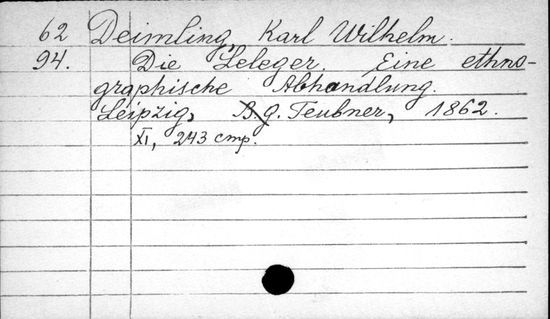 62 Deimling, Karl Wilhelm.
94. Die Leleger. Eine ethno-
graphische Abhandlung.
Leipzig, B. G. Teubner, 1862.
XI, 243 стр.